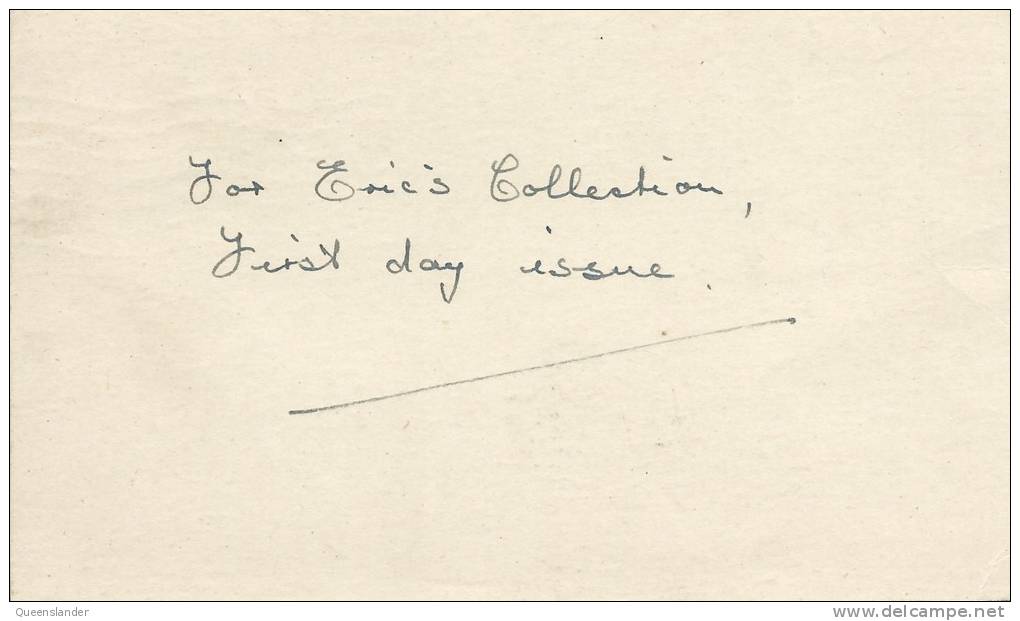 For Eric's Collection,
First day issue.
Queenslander
www.delcampe.net